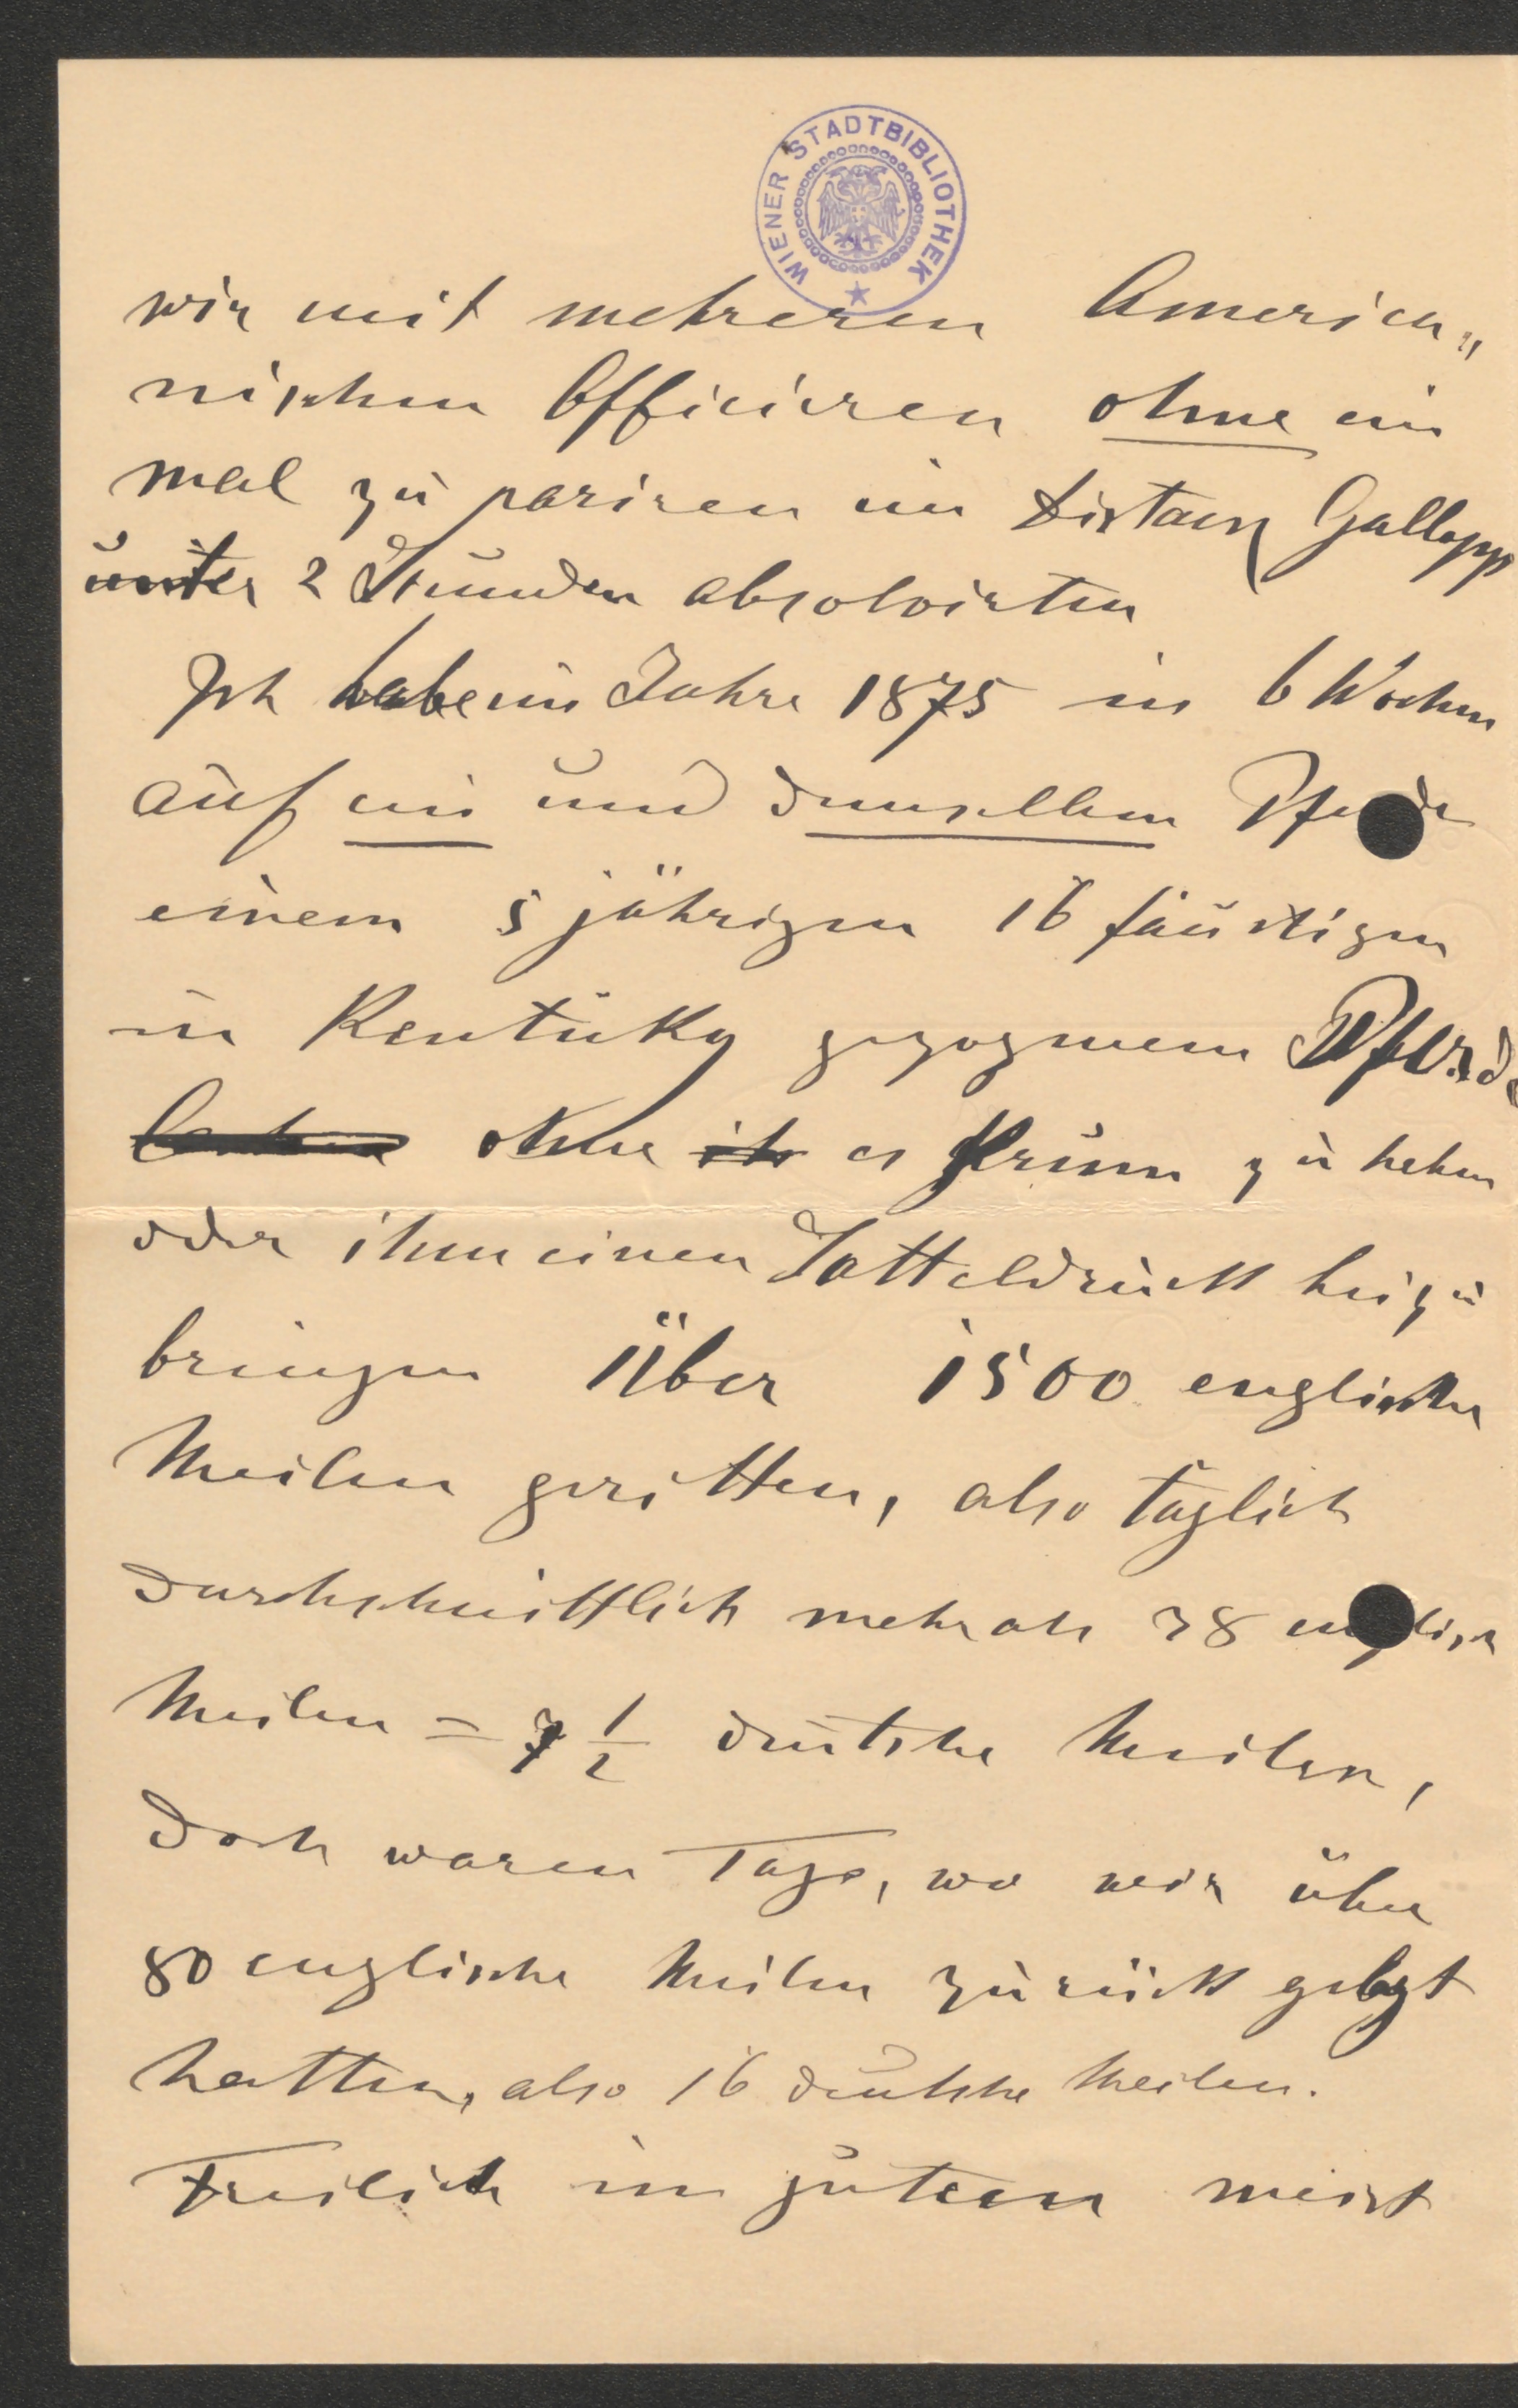 WIENER STADTBIBLIOTHEK
wir mit mehreren America„
nischen Officieren ohne ein
mal zu pariren im Distanz Gallopp
unter 2 Stunden absolvirten
Ich habe im Jahre 1875 in 6 Wochen
auf ein und demselben Pferde
einem 5 jährigen 16 fäustigen
in Kentuky gezogenem Pferde
ohne ih es krum zu
oder ihm einen Satteldruck beizu
bringen Über 1500 englische
Meilen geritten, also täglich
durchschnittlich mehr als 38 englisch
Meilen = 7 1/2 deutsche Meilen,
doch waren Tage, wo wir über
80 englische Meilen zurück gelegt
hatten, also 16 deutsche Meilen.
Freilich im gutem meist